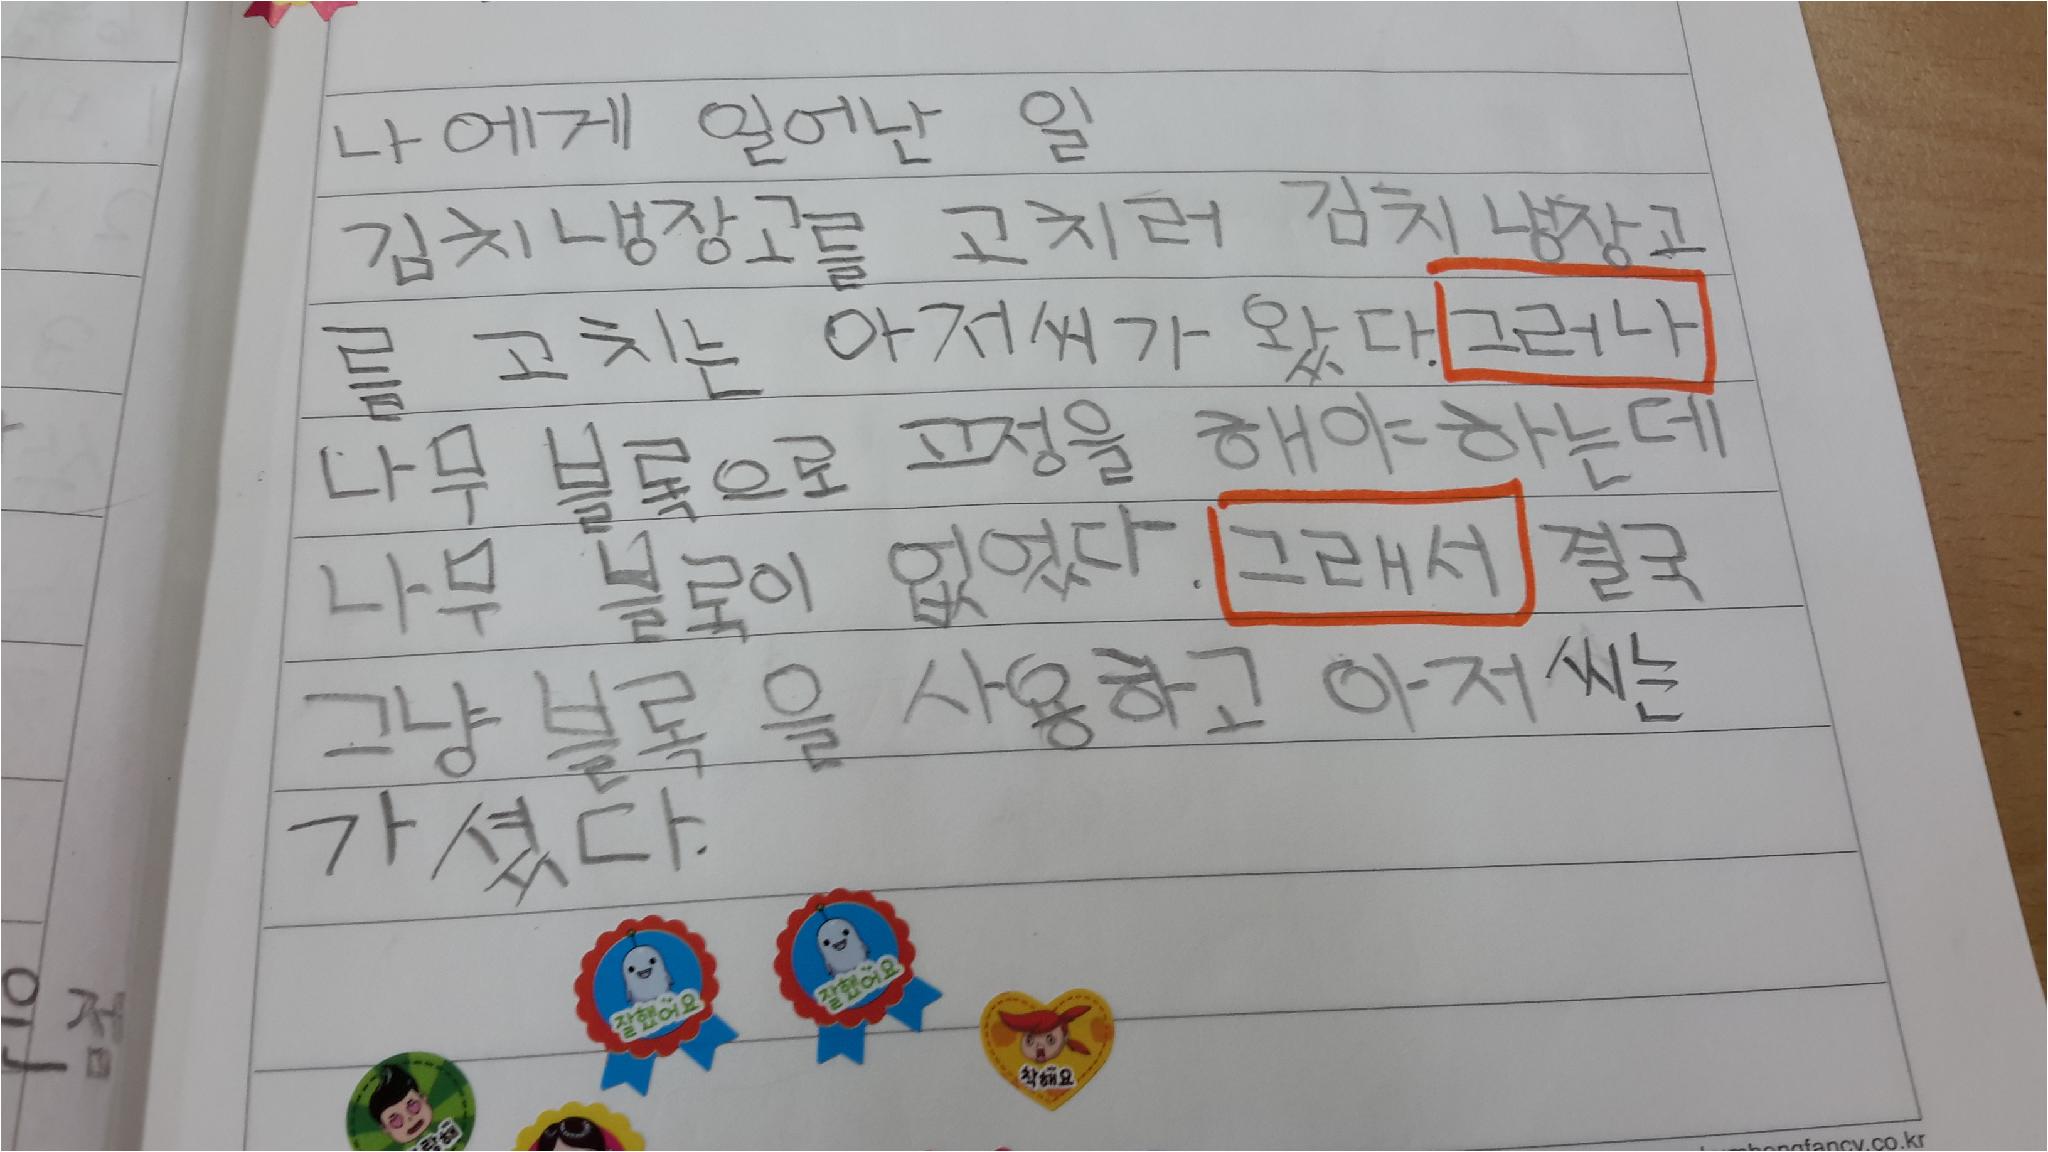 나에게 일어난 일
김치냉장고를 고치러 김치냉장고
를 고치는 아저씨가 왔다. 그러나
나무 블록으로 고정을 해야하는데
나무 블록이 없었다. 그래서 결국
그냥 블록을 사용하고 아저씨는
가셨다.
잘했어요
잘했어요
착해요